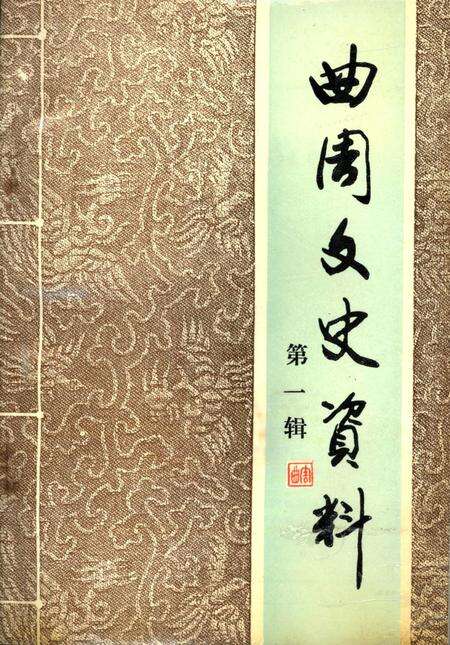 曲周文史資料
第一辑
曲周